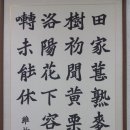 田家葚熟麥
樹初聞黃栗
洛陽花下客
囀未能休